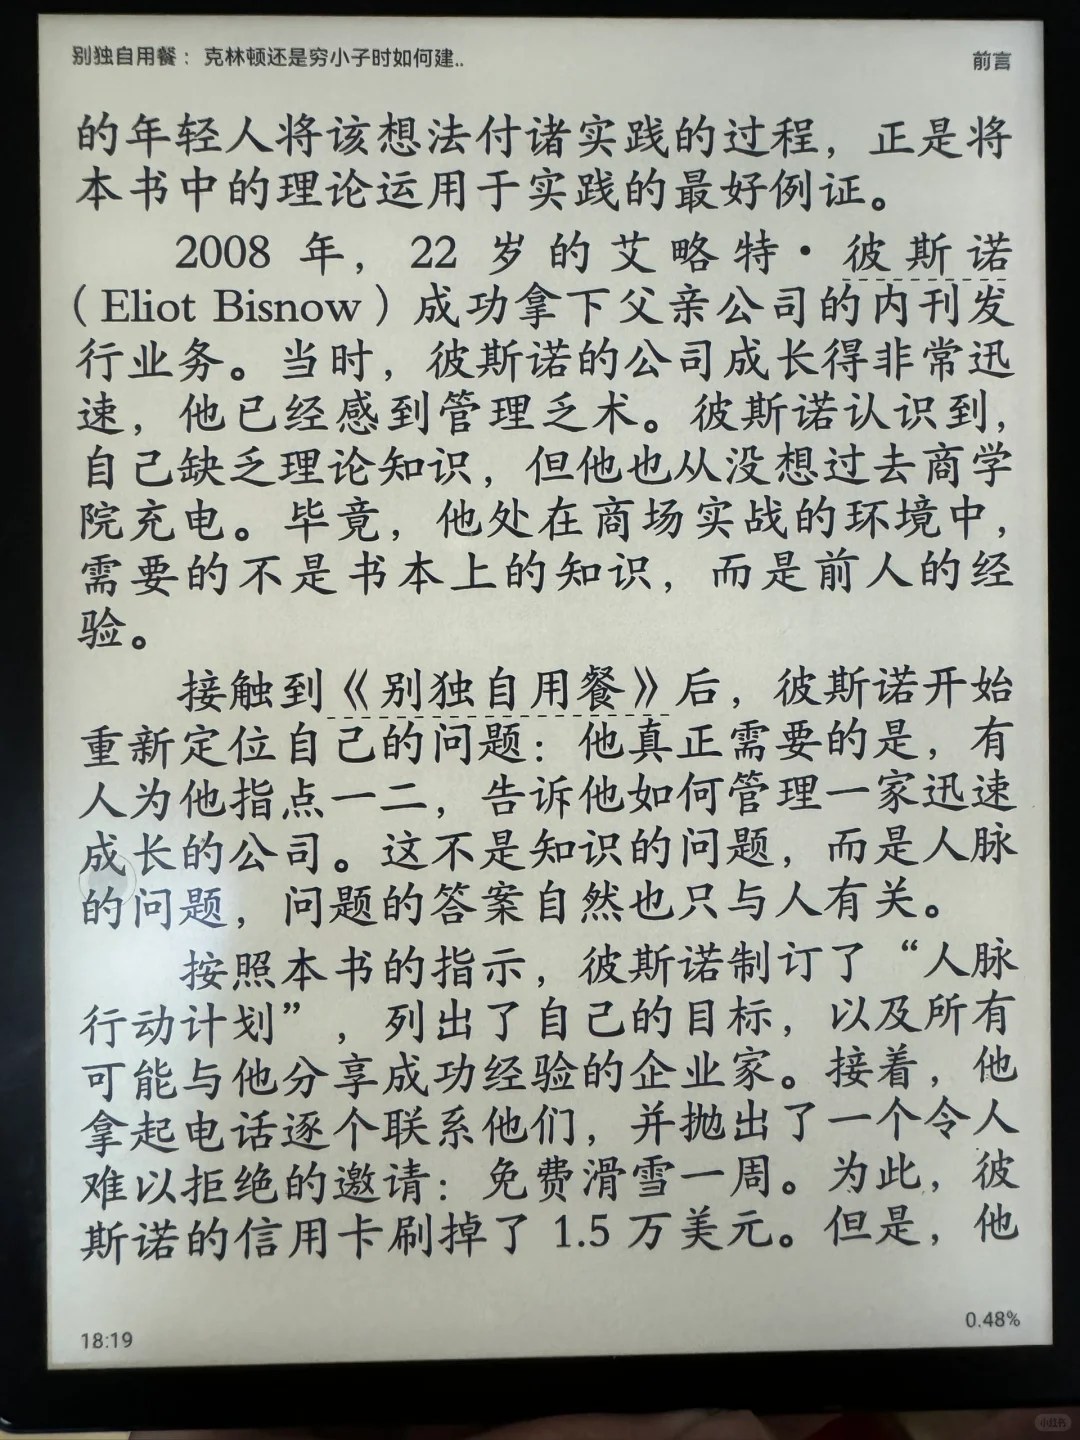 别独自用餐：克林顿还是穷小子时如何建..
前言
的年轻人将该想法付诸实践的过程，正是将
本书中的理论运用于实践的最好例证。
2008 年，22 岁的艾略特·彼斯诺
（Eliot Bisnow）成功拿下父亲公司的内刊发
行业务。当时，彼斯诺的公司成长得非常迅
速，他已经感到管理乏术。彼斯诺认识到，
自己缺乏理论知识，但他也从没想过去商学
院充电。毕竟，他处在商场实战的环境中，
需要的不是书本上的知识，而是前人的经
验。
接触到《别独自用餐》后，彼斯诺开始
重新定位自己的问题：他真正需要的是，有
人为他指点一二，告诉他如何管理一家迅速
成长的公司。这不是知识的问题，而是人脉
的问题，问题的答案自然也只与人有关。
按照本书的指示，彼斯诺制订了“人脉
行动计划”，列出了自己的目标，以及所有
可能与他分享成功经验的企业家。接着，他
拿起电话逐个联系他们，并抛出了一个令人
难以拒绝的邀请：免费滑雪一周。为此，彼
斯诺的信用卡刷掉了 1.5 万美元。但是，他
18:19
0.48%
小红书